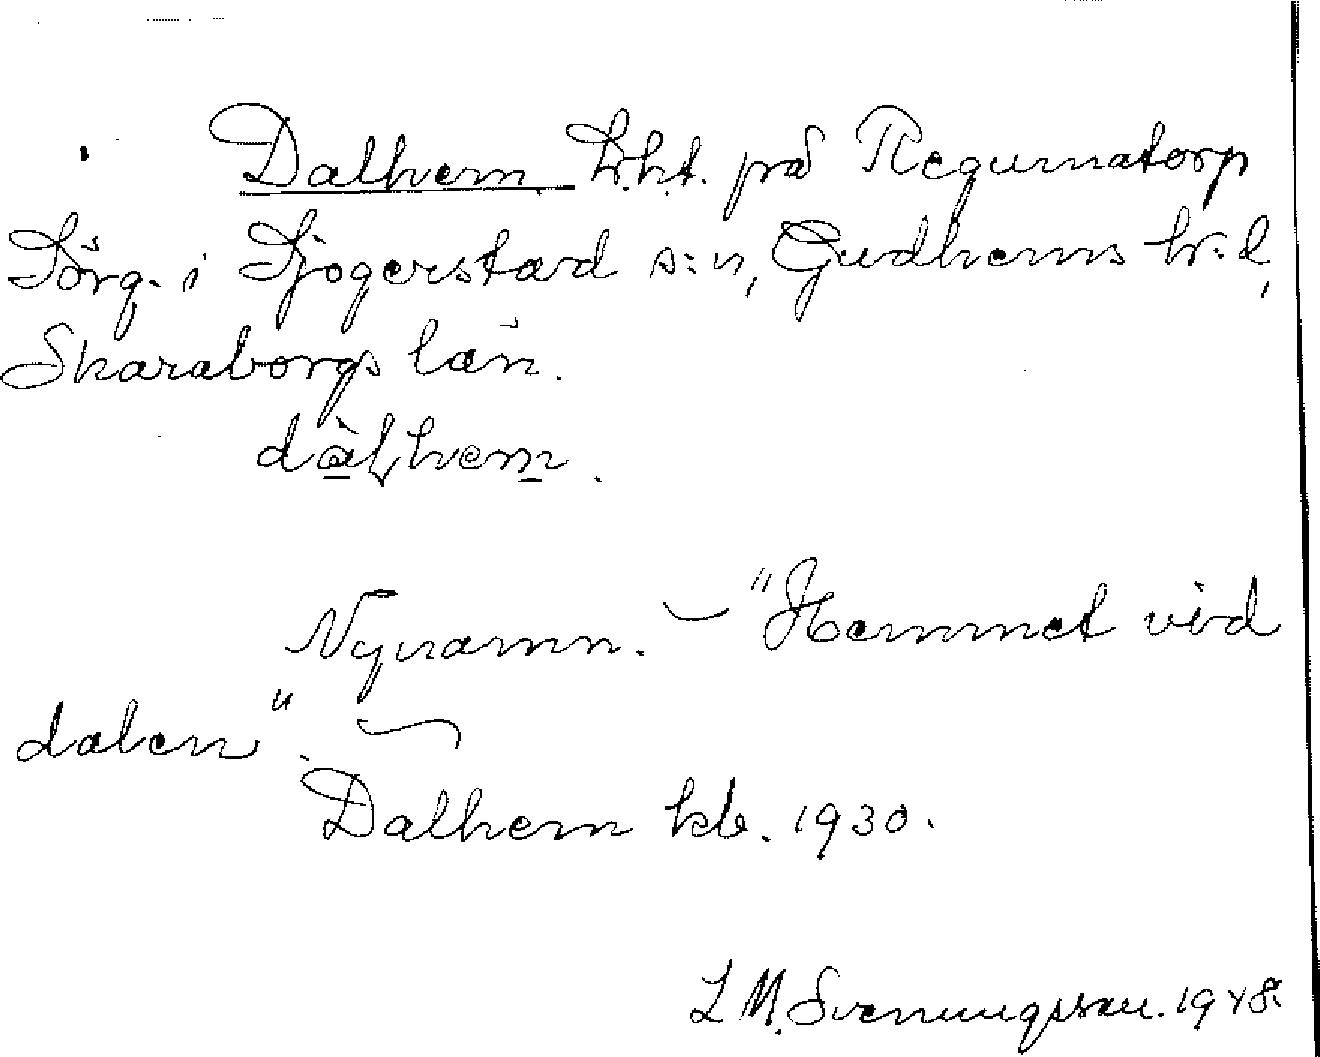 Dalhem Lht. på Regumatorp
Sörg. i Sjogerstad s:n, Gudhems h:d,
Skaraborgs län.
dàlhem.
Nynamn. – "Hemmet vid
dalen".
Dalhem kb. 1930.
L M. Svenungsson. 1948.